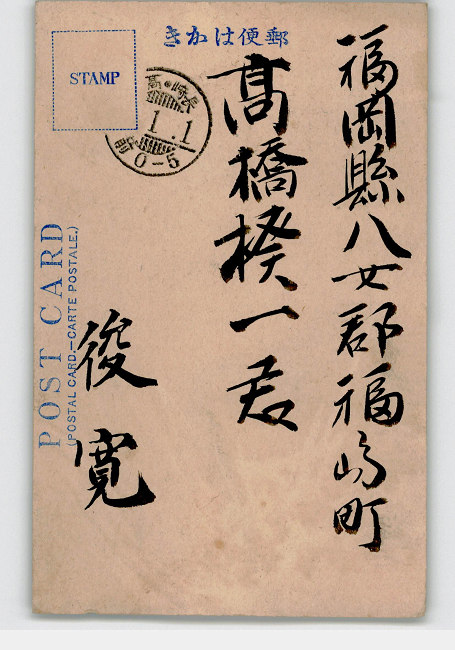 郵便はかき
STAMP
長崎・髙
1.1
前0-5
福岡縣八女郡福島町
髙橋揆一君
俊寛
POST CARD
(POSTAL CARD.—CARTE POSTALE.)